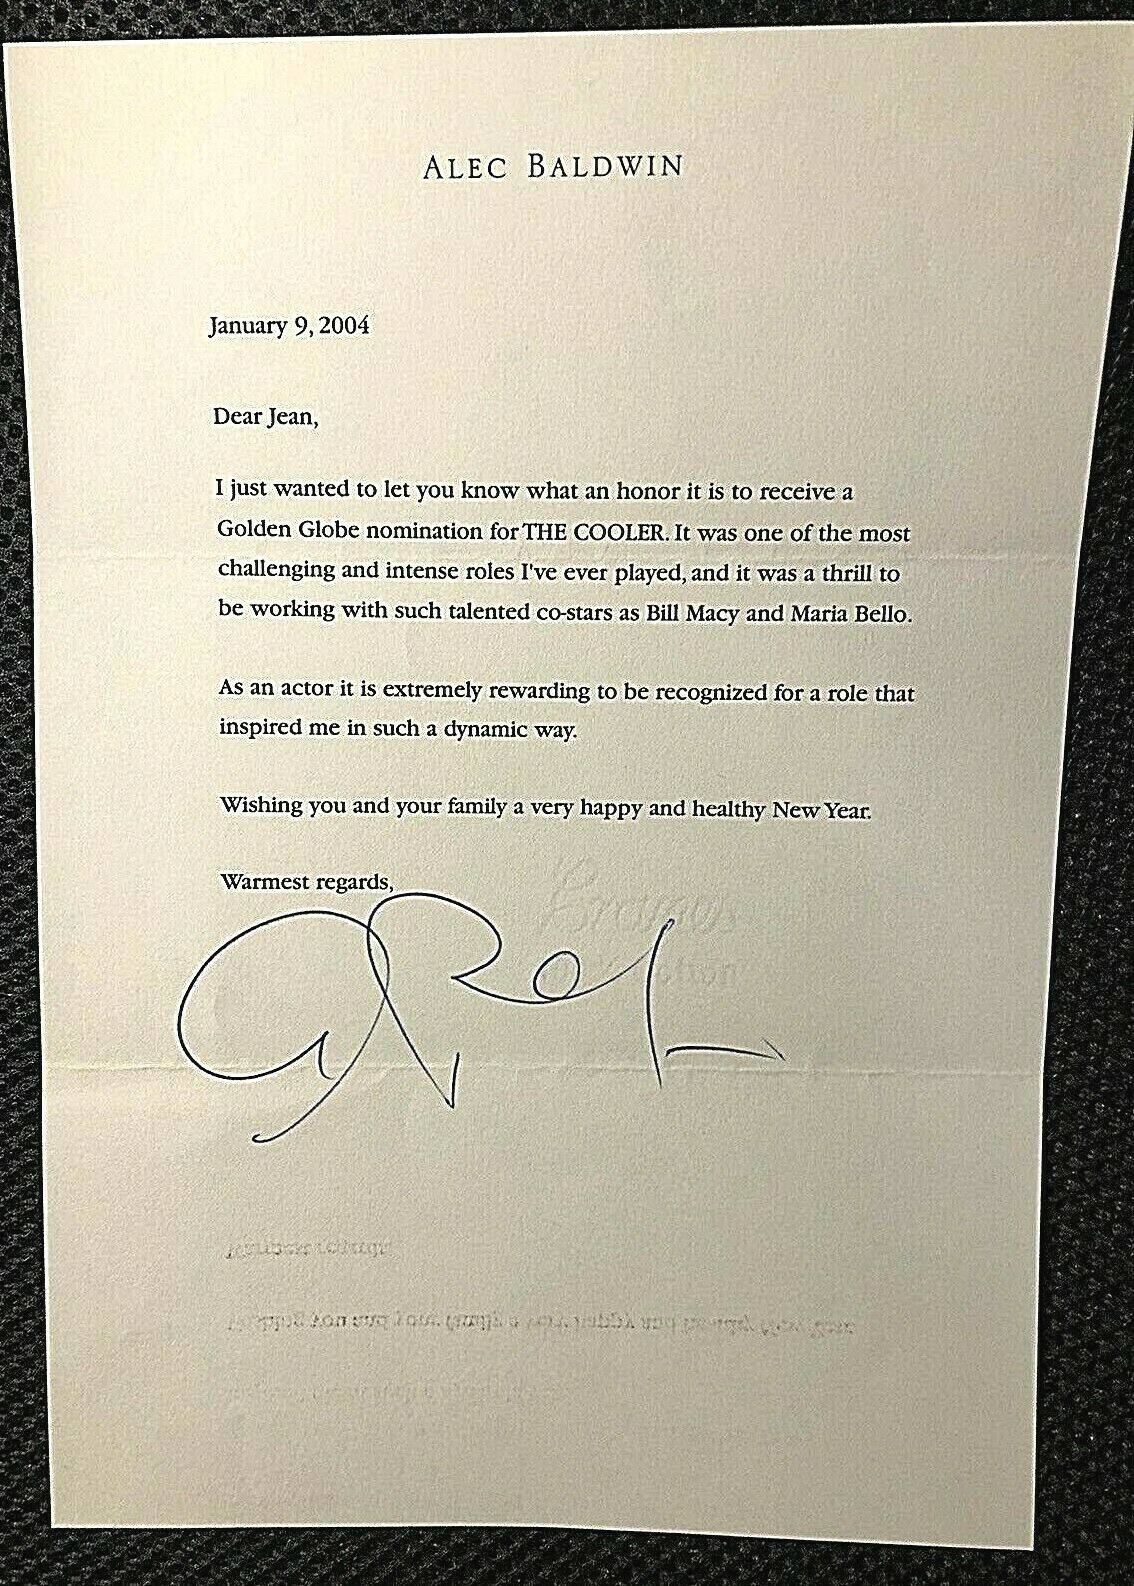 ALEC BALDWIN
January 9, 2004
Dear Jean,
I just wanted to let you know what an honor it is to receive a
Golden Globe nomination for THE COOLER. It was one of the most
challenging and intense roles I've ever played, and it was a thrill to
be working with such talented co-stars as Bill Macy and Maria Bello.
As an actor it is extremely rewarding to be recognized for a role that
inspired me in such a dynamic way.
Wishing you and your family a very happy and healthy New Year.
Warmest regards,